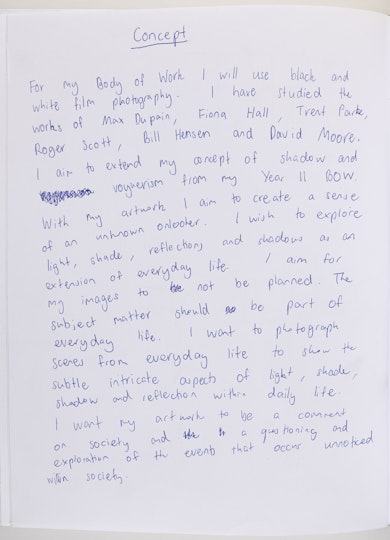 Concept
For my Body of Work I will use black and
white film photography. I have studied the
works of Max Dupain, Fiona Hall, Trent Parke,
Roger Scott, Bill Hensen and David Moore.
I aim to extend my concept of shadow and
voyuerism from my Year 11 BOW.
With my artwork I aim to create a sense
of an unknown onlooker. I wish to explore
light, shade, reflections and shadows as an
extension of everyday life. I aim for
my images to not be planned. The
subject matter should be part of
everyday life. I want to photograph
scenes from everyday life to show the
subtle intricate aspects of light, shade,
shadow and reflection within daily life.
I want my artwork to be a comment
on society and a questioning and
exploration of the events that occur unnoticed
within society.